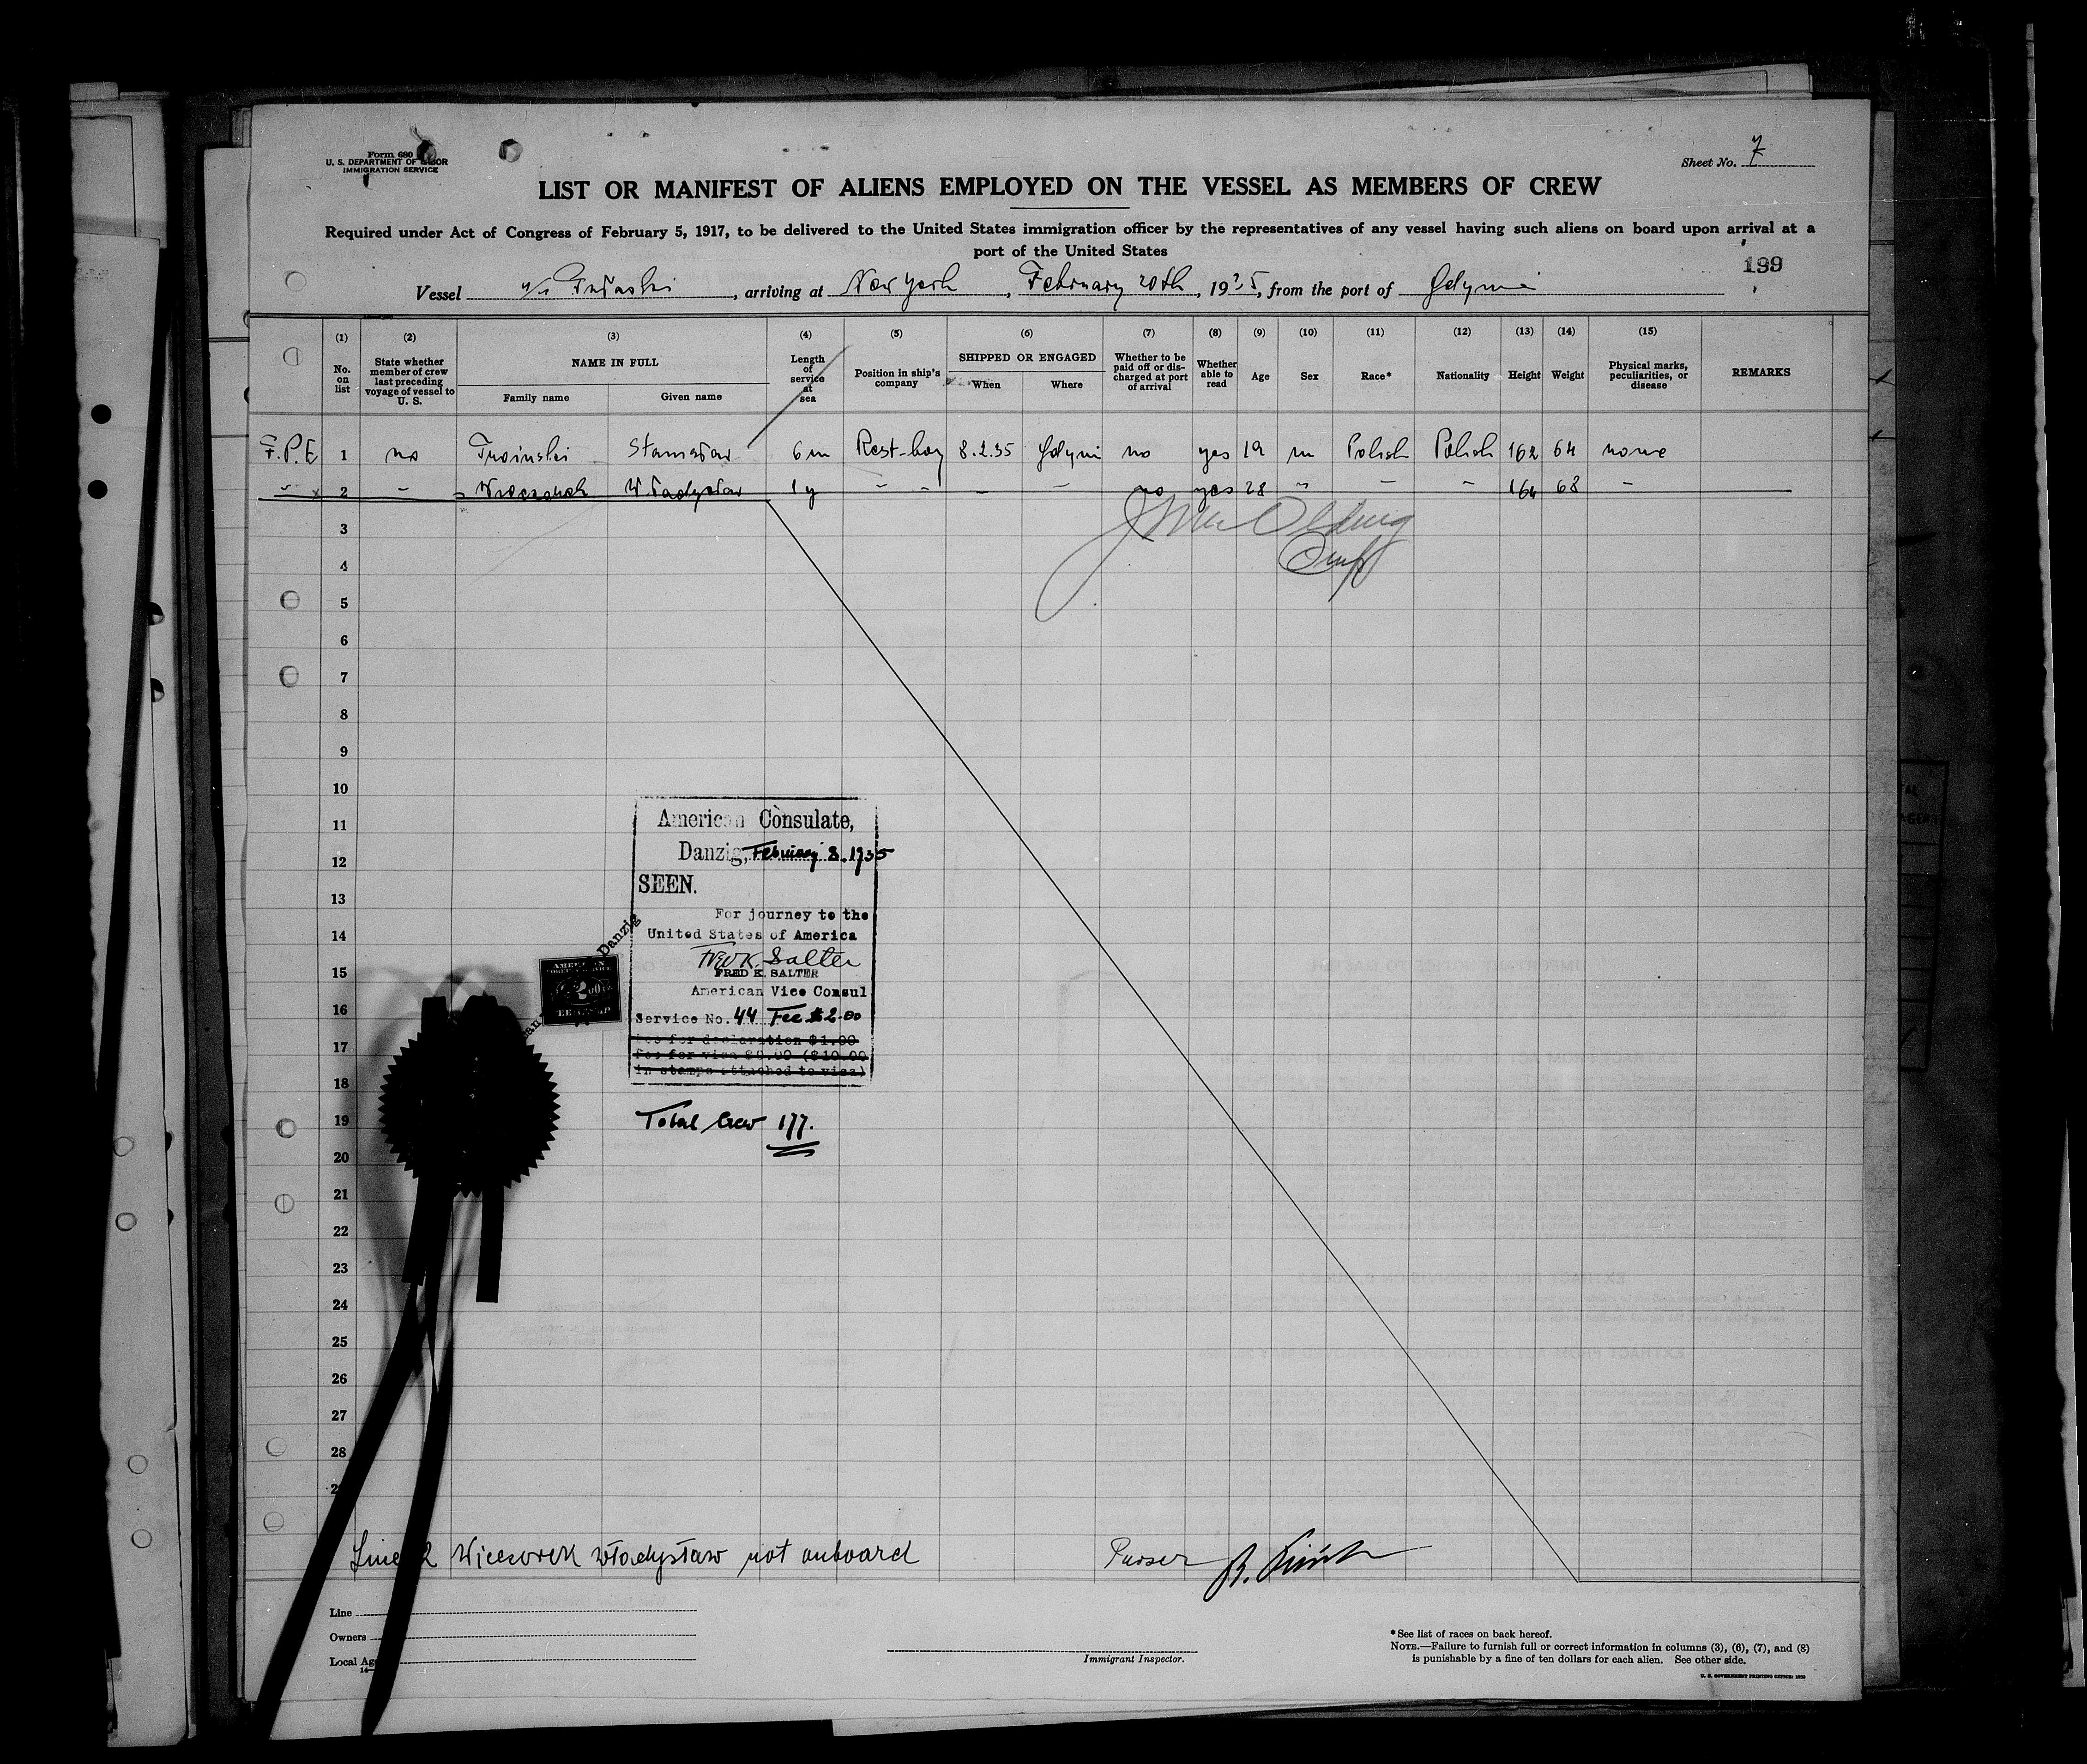 Form 680
U. S. DEPARTMENT OF LABOR
IMMIGRATION SERVICE
Sheet No. 7
LIST OR MANIFEST OF ALIENS EMPLOYED ON THE VESSEL AS MEMBERS OF CREW
Required under Act of Congress of February 5, 1917, to be delivered to the United States immigration officer by the representatives of any vessel having such aliens on board upon arrival at a
port of the United States
199
Vessel s/s Pułaski, arriving at New York, February 20th, 1935, from the port of Gdynia
(1) (2) (3) (4) (5) (6) (7) (8) (9) (10) (11) (12) (13) (14) (15)
No. on list
State whether member of crew last preceding voyage of vessel to U. S.
NAME IN FULL
Family name
Given name
Length of service at sea
Position in ship's company
SHIPPED OR ENGAGED
When
Where
Whether to be paid off or discharged at port of arrival
Whether able to read
Age
Sex
Race*
Nationality
Height
Weight
Physical marks, peculiarities, or disease
REMARKS
F.P.E 1 no Troinski Stanisław 6 m Rest-boy 8.2.35 Gdyni no yes 19 m Polish Polish 162 64 none
" x 2 - Wieczorek Władysław 1 y - - - - no yes 28 " - - 164 68 -
3
4
5
6
7
8
9
10
11
12
13
14
15
16
17
18
19
20
21
22
23
24
25
26
27
28
American Consulate,
Danzig, February 8. 1935
SEEN.
For journey to the
United States of America
Fred K. Salter
FRED K. SALTER
American Vice Consul
Service No. 44 Fee $2.00
Fee for declaration $1.00
Fee for visa $9.00 ($10.00
in stamps attached to visa)
Danzig
AMERICAN
FOREIGN SERVICE
2.00
FEE STAMP
Total Crew 177.
Line 2 Wieczorek Władysław not onboard
Purser
Line
Owners
Local Ag
Immigrant Inspector.
*See list of races on back hereof.
NOTE.—Failure to furnish full or correct information in columns (3), (6), (7), and (8)
is punishable by a fine of ten dollars for each alien. See other side.
U. S. GOVERNMENT PRINTING OFFICE: 1930